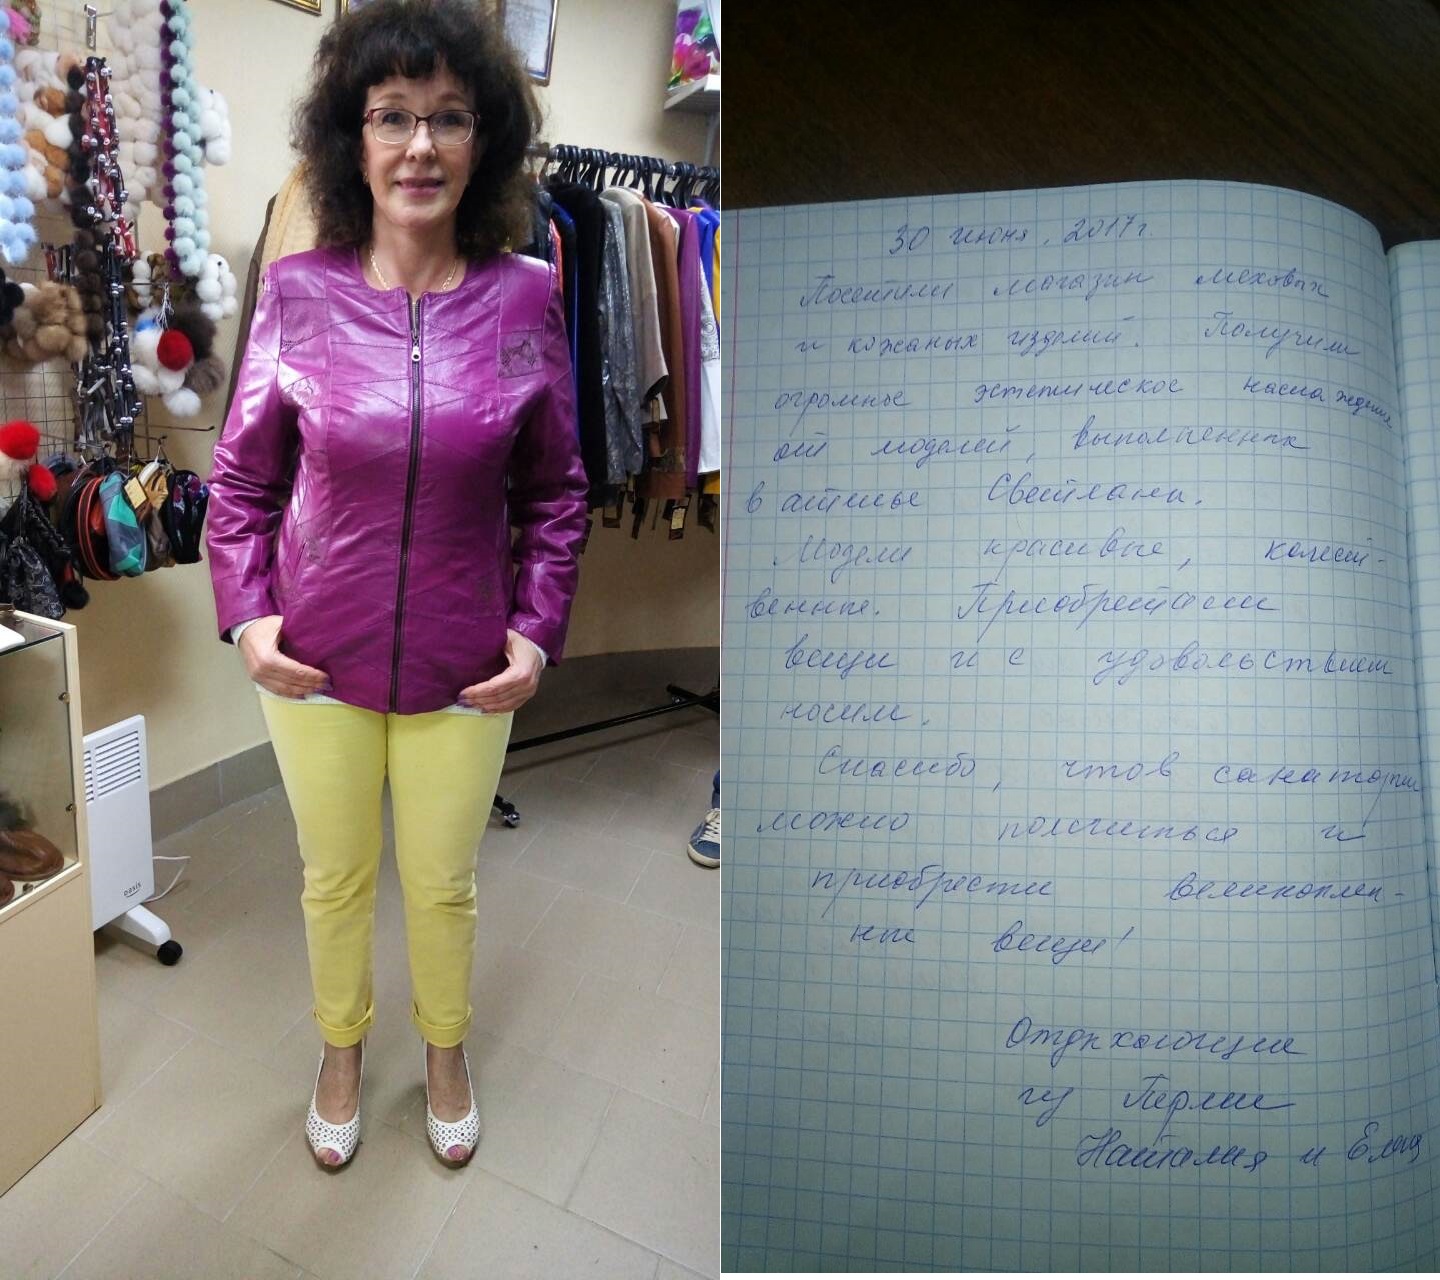 oasis
30 июня, 2017г.
Посетили магазин меховых
и кожаных изделий. Получили
огромные эстетическое наслаждения
от моделей, выполненных
в ателье Светланы.
Модели красивые, качест-
венные. Приобретаем
вещи и с удовольствием
носим.
Спасибо, что в санатории
можно полечиться и
приобрести великолеп-
ные вещи!
Отдыхающие
из Перми
Наталия и Елена